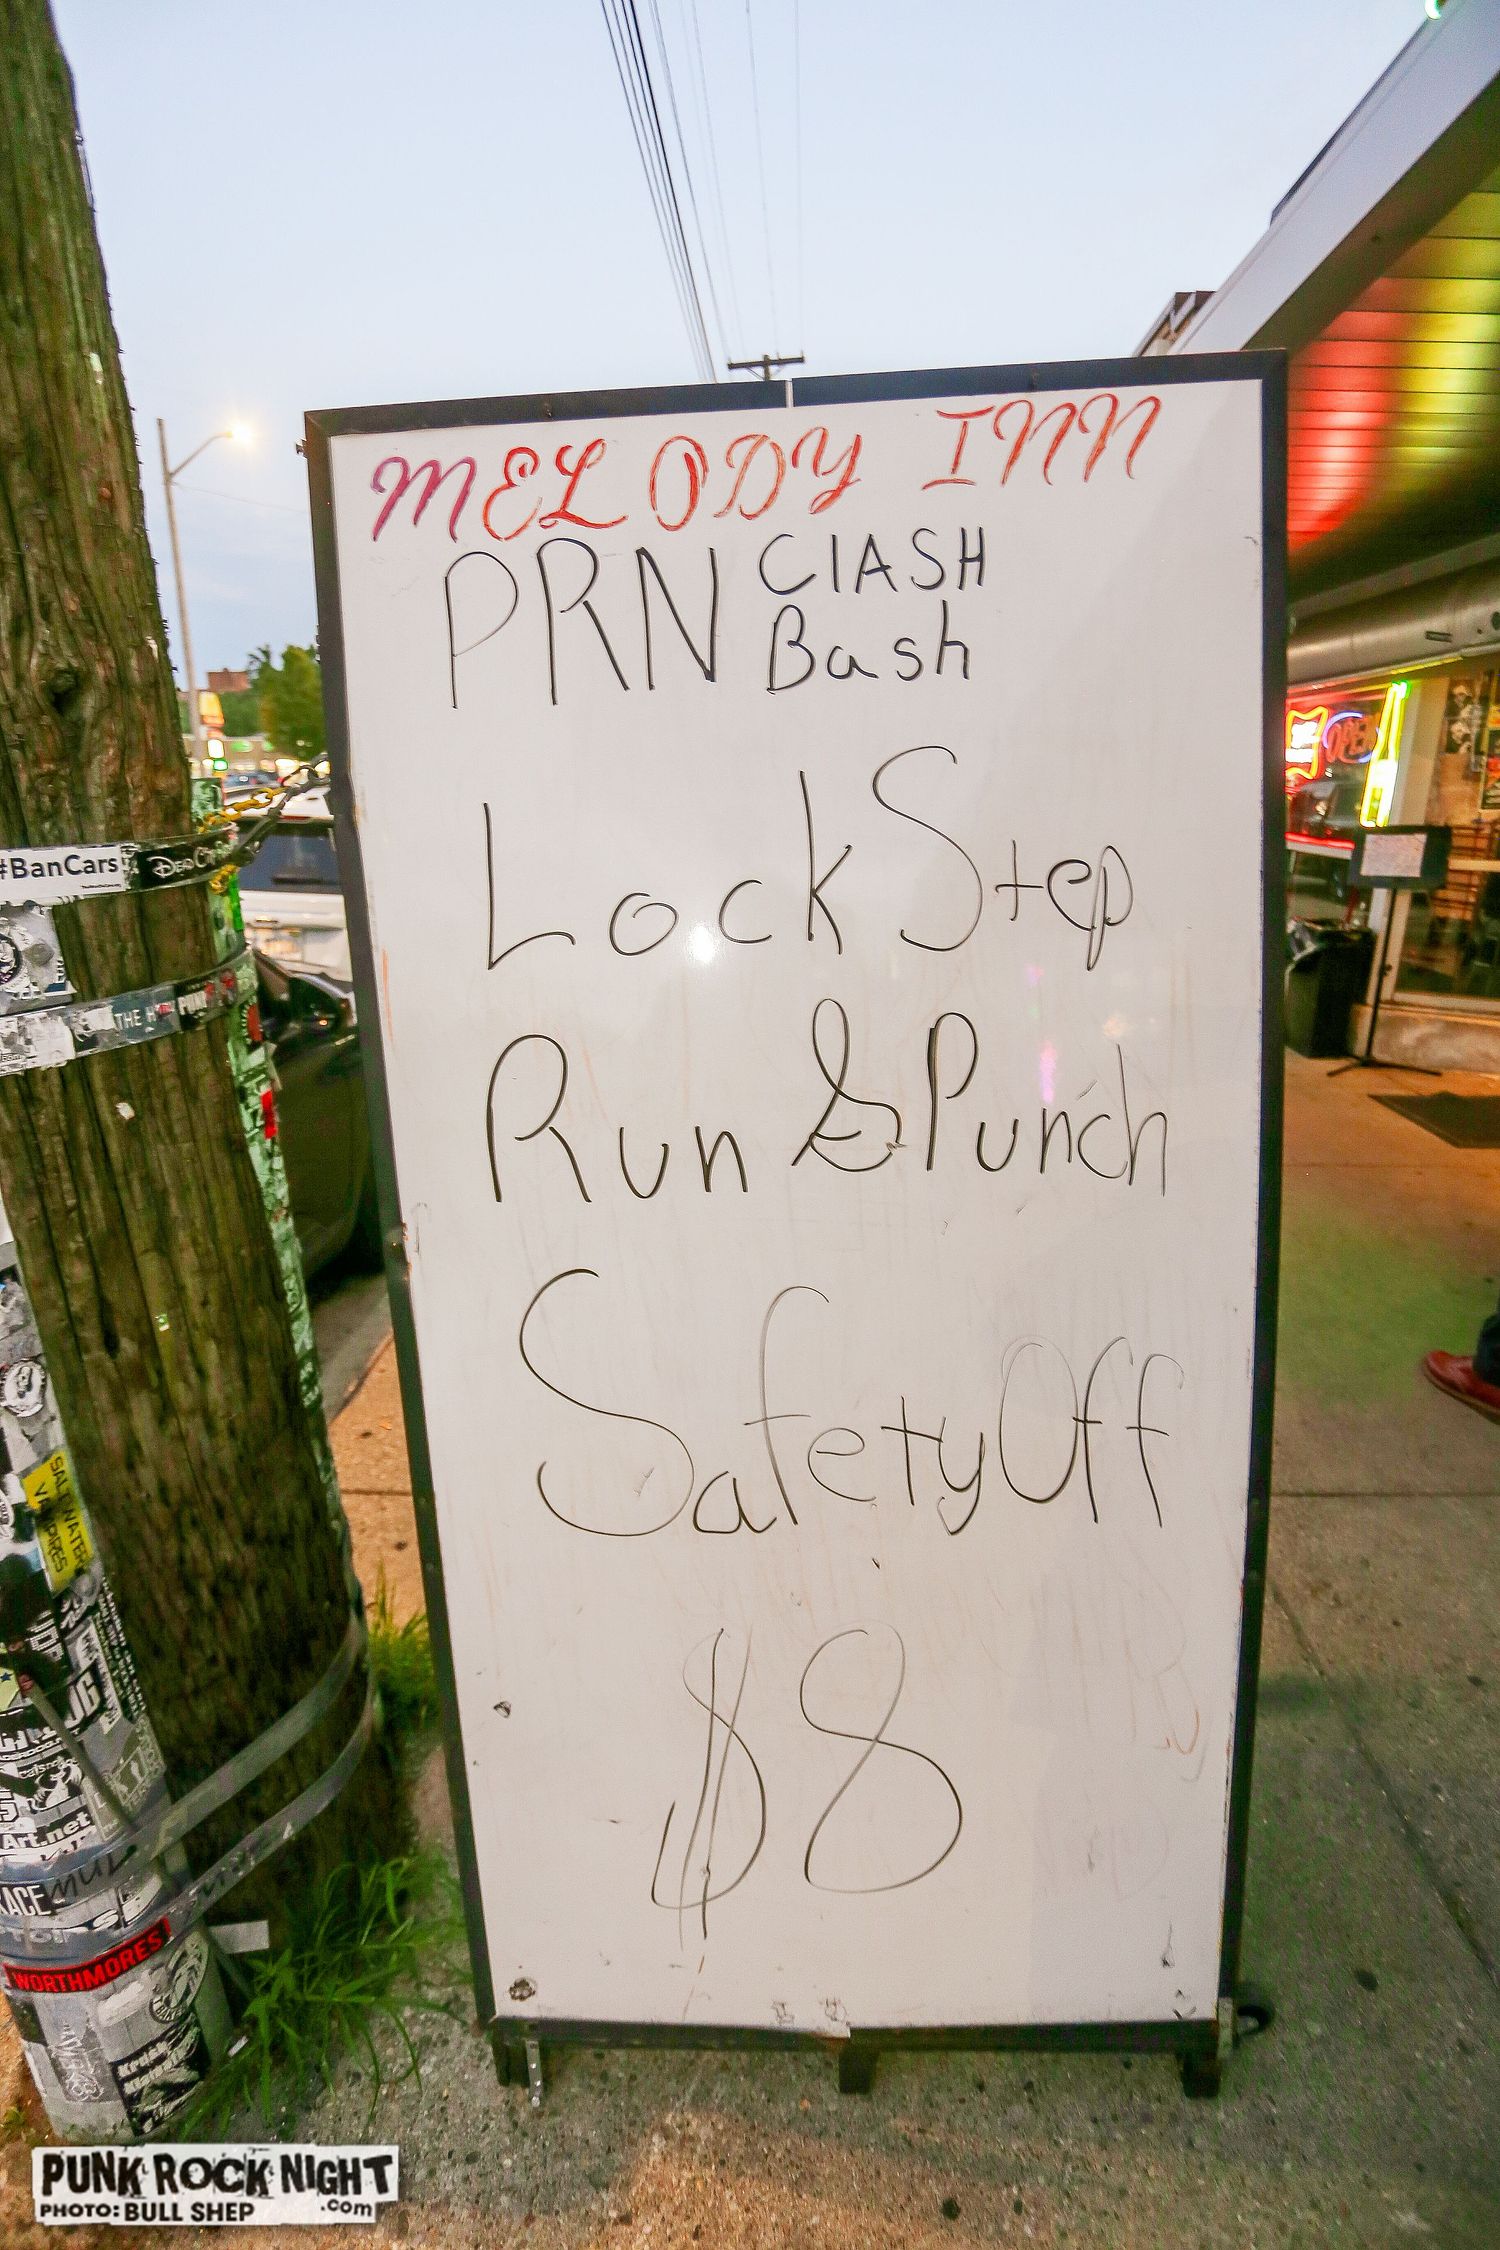 MELODY INN
PRN ClASH
Bash
LockStep
Run & Punch
SafetyOff
$8
#BanCars
OPEN
PUNK
SALTWATER
VAMPIRES
Art.net
WORTHMORES
PUNK ROCK NIGHT
.com
PHOTO: BULL SHEP